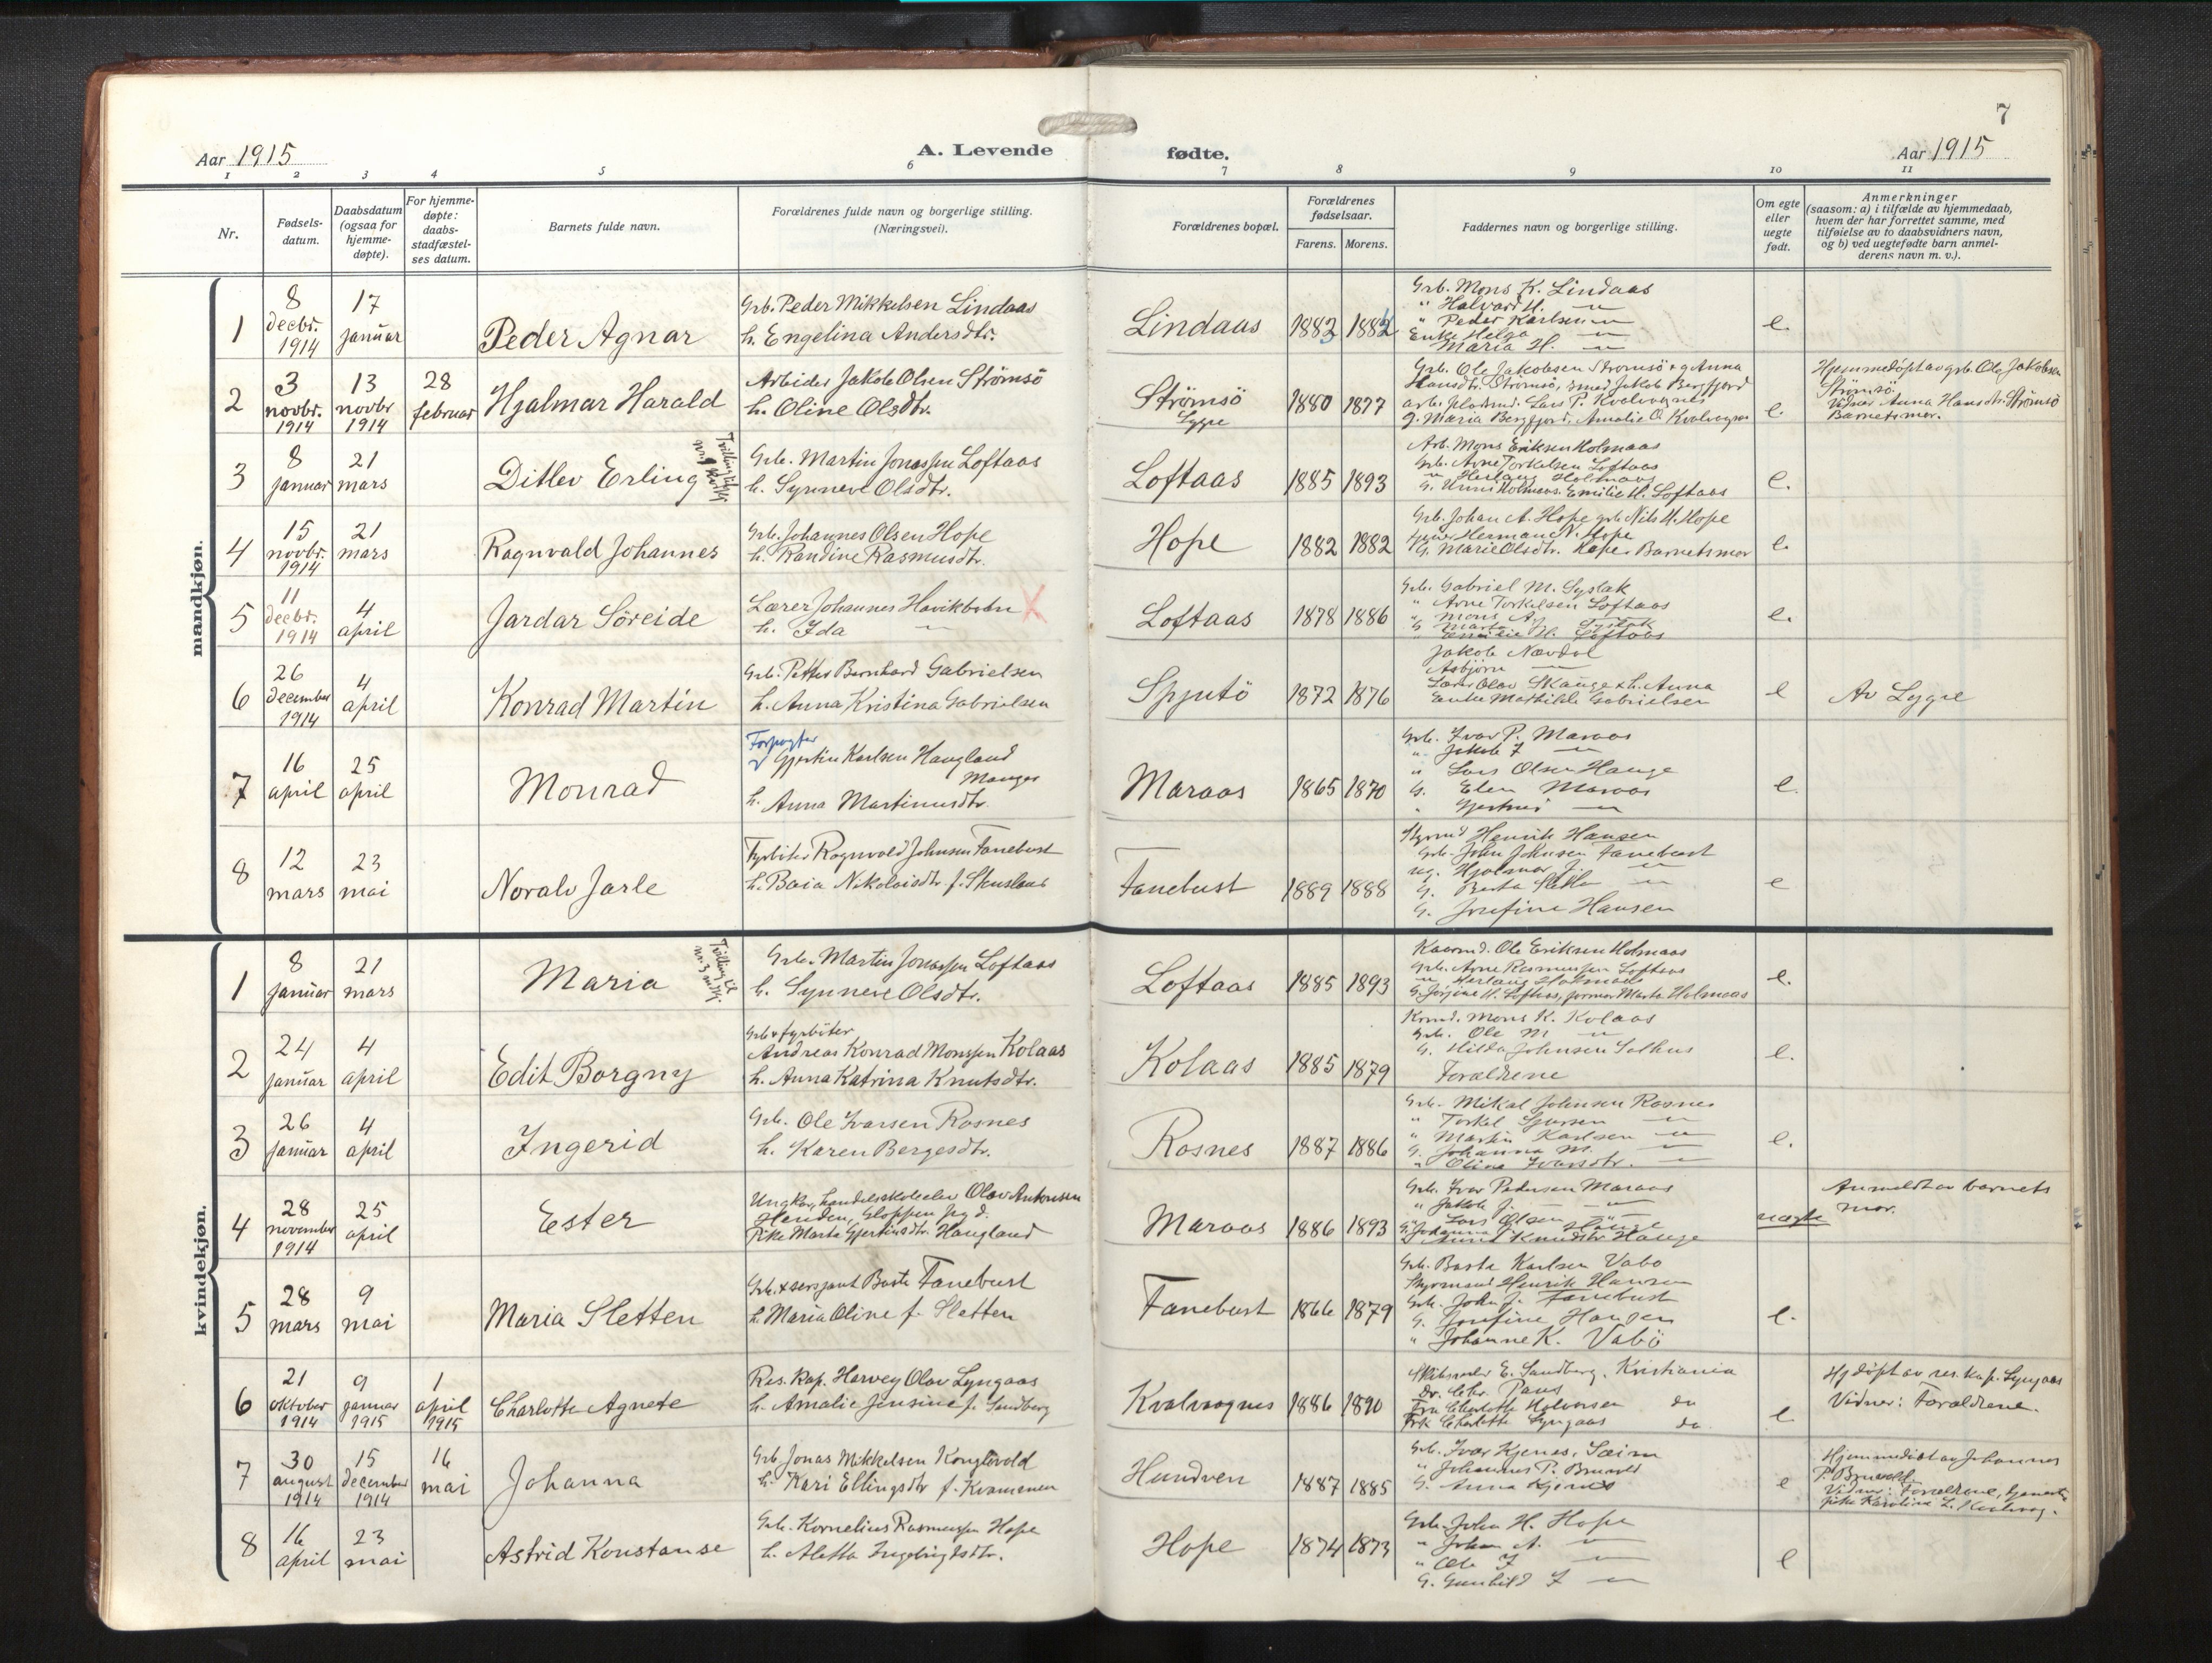 7
Aar 1915
A. Levende fødte.
Aar 1915
1 2 3 4 5 6 7 8 9 10 11
Nr.
Fødsels-
datum.
Daabsdatum
(ogsaa for
hjemme-
døpte).
For hjemme-
døpte:
daabs-
stadfæstel-
ses datum.
Barnets fulde navn.
Forældrenes fulde navn og borgerlige stilling.
(Næringsvei).
Forældrenes bopæl.
Forældrenes
fødselsaar.
Farens. Morens.
Faddernes navn og borgerlige stilling.
Om egte
eller
uegte
født.
Anmerkninger
(saasom: a) i tilfælde av hjemmedaab,
hvem der har forrettet samme, med
tilføielse av to daabsvidners navn,
og b) ved uegtefødte barn anmel-
derens navn m. v.).
mandkjøn.
1
8
decbr.
1914
17
januar
Peder Agnar
Grb. Peder Mikkelsen Lindaas
h. Engelina Andersdtr.
Lindaas
1883 1882
Grb. Mons K. Lindaas
" Halvard H. —
" Peder Karlsen —
Enke Helga —
Maria H. —
e.
2
3
novbr.
1914
13
novbr
1914
28
februar
Hjalmar Harald
Arbeider Jakob Olsen Strömsö
h. Oline Olsdtr.
Strömsö
Lygre
1880 1877
Grb. Ole Jakobsen Strömsö + g. Anna
Hansdtr. Strömsö, smed Jakob Bergfjord
arb. pladsmd. Lars P. Kvalvagnes
g. Maria Bergfjord, Amalie O. Kvalvagnes
e.
Hjemmedöpt av grb. Ole Jakobsen
Strömsö.
Vidner Anna Hansdtr. Strömsö
Barnets mor.
3
8
januar
21
mars
Ditlev Erling
Tvilling til
nr. 1 kvkj.
Grb. Martin Jonassen Loftaas
h. Synneve Olsdtr.
Loftaas
1885 1893
Arb. Mons Eriksen Holmaas
Grb. Arne Torkelsen Loftaas
" Herlaug Holmaas
G. Unni Holmaas. Emilie H. Loftaas
e.
4
15
novbr.
1914
21
mars
Ragnvald Johannes
Grb. Johannes Olsen Hope
h. Randine Rasmusdtr.
Hope
1882 1882
Grb. Johan A. Hope grb. Nils H. Hope
Herman N. Hope
G. Marie Olsdtr. Hope. Barnets mor
e.
5
11
decbr.
1914
4
april
Jardar Söreide
Lærer Johannes Havikbotn X
h. Ida —
Loftaas
1878 1886
Grb. Gabriel M. Syslak
" Arne Torkelsen Loftaas
" Mons A. —
G. Marta J. Syslak
" Emilie H. Loftaas
e.
6
26
december
1914
4
april
Konrad Martin
Grb. Petter Bernhard Gabrielsen
h. Anna Kristina Gabrielsen
Spjutö
1872 1876
Jakob Nævdal
Asbjörn —
Lærer Olav Skauge & h. Anna
Enke Mathilde Gabrielsen
e
Av Lygre
7
16
april
25
april
Monrad
Forpagter
Gjertin Karlsen Haugland
Manger
h. Anna Martinusdtr.
Maraas
1865 1870
Grb. Ivar P. Maraas
" Jakob J —
" Lars Olsen Hauge
G. Elen Maraas
" Gjertine —
e.
8
12
mars
23
mai
Noralv Jarle
Fyrbiter Ragnvald Johnsen Fanebust
h. Baia Nikolaisdtr f. Stenslaas
Fanebust
1889 1888
Styrmd Henrik Hansen
Grb. John Johnsen Fanebust
ug. Hjalmar J. —
G. Berta Sletten —
G. Josefine Hansen
e
kvindekjøn.
1
8
januar
21
mars
Maria
Tvilling til
nr. 3 mdkj.
Grb. Martin Jonassen Loftaas
h. Synneve Olsdtr.
Loftaas
1885 1893
Kaarmd. Ole Eriksen Holmaas
Grb. Arne Rasmussen Loftaas
" Herlaug Holmaas
G. Jörgine H. Loftaas, farmor Marta Holmaas
e.
2
24
januar
4
april
Edit Borgny
Grb & fyrböter
Andreas Konrad Monssen Kolaas
h. Anna Katrina Knutsdtr.
Kolaas
1885 1879
Krmd. Mons K. Kolaas
Grb. Ole M —
G. Hilda Johnsen Salhus
Forældrene
e.
3
26
januar
4
april
Ingerid
Grb. Ole Ivarsen Rosnes
h. Karen Bergesdtr.
Rosnes
1887 1886
Grb. Mikal Johnsen Rosnes
" Torkel Sjursen —
" Martin Karlsen —
G. Johanna M. —
" Olina Ivarsdtr. —
e.
4
28
november
1914
25
april
Ester
Ungkar, handelsskoleelev Olav Antonsen
Henden, Gloppen pgd.
Pike Marta Gjertinsdtr. Haugland
Maraas
1886 1893
Grb. Ivar Pedersen Maraas
" Jakob J. —
" Lars Olsen Hauge
G. Johanna
" Anna Knudsdtr Hauge
uegte
Anmeldt av barnets
mor.
5
28
mars
9
mai
Maria Sletten
Grb. & sersjant Baste Fanebust
h. Maria Oline f. Sletten
Fanebust
1866 1879
Grb. Baste Karlsen Vabö
Styrmand Henrik Hansen
Grb. John J. Fanebust
G. Josefine Hansen
" Johanne K. Vabö
e.
6
21
oktober
1914
9
januar
1915
1
april
1915
Charlotte Agnete
Res. Kap. Harvey Olav Lyngaas
h. Amalie Jensine f. Sandberg
Kvalvagnes
1886 1890
Skibsreder E. Sandberg, Kristiania
Dr. Chr. Paus
Fru Charlotte Halvorsen do
Frk Charlotte Lyngaas do
e
Hjdöpt av res. kap. Lyngaas
Vidner: Forældrene.
7
30
august
1914
15
december
1914
16
mai
Johanna
Grb. Jonas Mikkelsen Konglevold
h. Kari Ellingsdtr f. Kvammen
Hundven
1887 1885
Grb. Ivar Kjenes, Seim
" Johannes P. Bruvold
G. Anna Kjenes
e
Hjemmedöpt av Johannes
P. Bruvold.
Vidner: Forældrene,
pike Karoline L.
8
16
april
23
mai
Astrid Konstanse
Grb. Kornelius Rasmussen Hope
h. Aletta Ingebrigtsdtr.
Hope
1874 1873
Grb. John H. Hope
" Johan A. —
" Ole J —
G. Gunhild J —
e